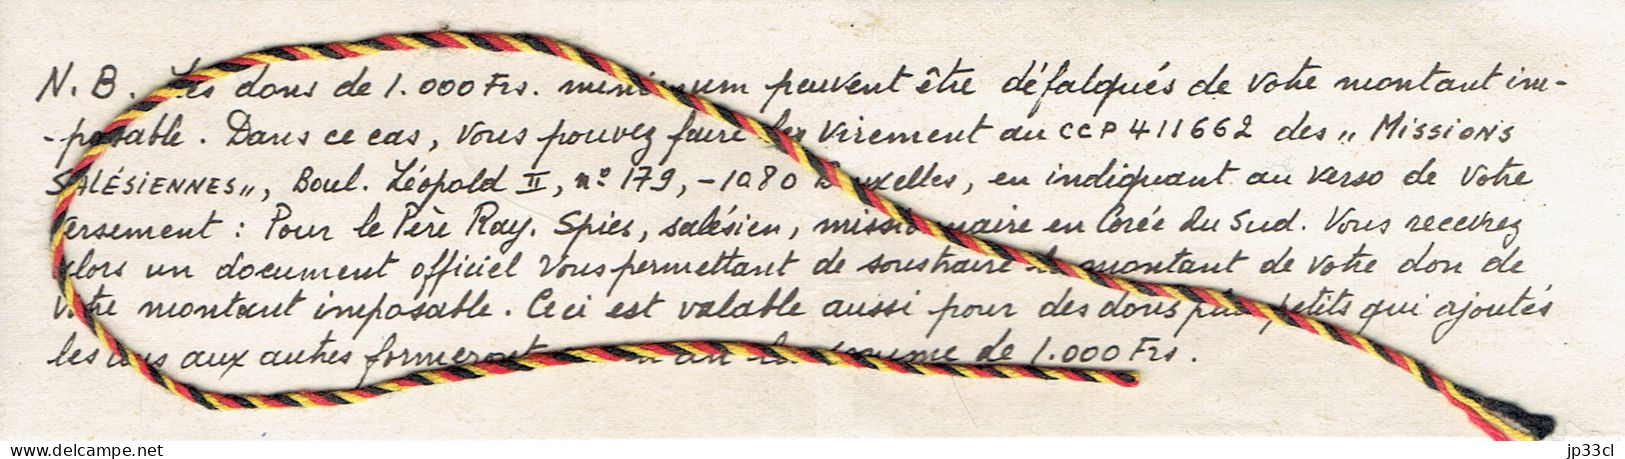 N.B. Les dons de 1.000 Frs. minimum peuvent être défalqués de votre montant im-
-posable. Dans ce cas, vous pouvez faire les virement au CCP 411662 des „ MISSIONS
SALÉSIENNES„, Boul. Léopold II, n° 179, -1080 Bruxelles, en indiquant au verso de votre
versement : Pour le Père Ray. Spies, salésien, missionnaire en Corée du Sud. Vous recevrez
alors un document officiel vous permettant de soustraire le montant de votre don de
votre montant imposable. Ceci est valable aussi pour des dons plus petits qui ajoutés
les uns aux autres formeront un an la somme de 1.000 Frs.
delcampe.net
jp33cl